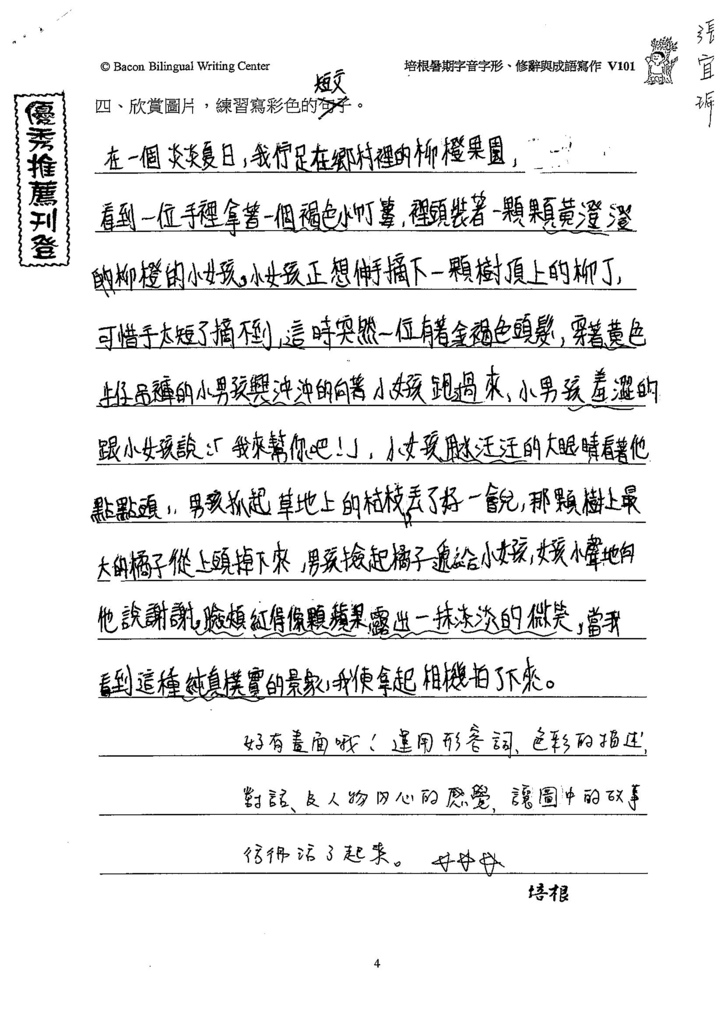 © Bacon Bilingual Writing Center
培根暑期字音字形、修辭與成語寫作 V101
張宜
優秀推薦刊登
短文
四、欣賞圖片,練習寫彩色的句子。
在一個炎炎夏日,我們走在鄉村裡的柳橙果園,
看到一位手裡拿著一個褐色小竹簍,裡頭裝著一顆顆黃澄澄
的柳橙的小女孩。小女孩正想伸手摘下一顆樹頂上的柳丁,
可惜手太短了摘不到,這時突然一位有著金褐色頭髮,穿著黃色
吊褲的小男孩興沖沖的向著小女孩跑過來,小男孩羞澀的
跟小女孩說:「我來幫你吧!」,小女孩用水汪汪的大眼睛看著他
點點頭,男孩抓起草地上的枯枝丟了好一會兒,那顆樹上最
大的橘子從上頭掉下來,男孩撿起橘子遞給小女孩,女孩小聲地向
他說謝謝,臉頰紅得像顆蘋果,露出一抹淡淡的微笑,當我
看到這種純真樸實的景象,我便拿起相機拍了下來。
好有畫面哦!運用形容詞、色彩的描述,
對話、及人物內心的感覺,讓圖中的故事
彷彿活了起來。
培根
4